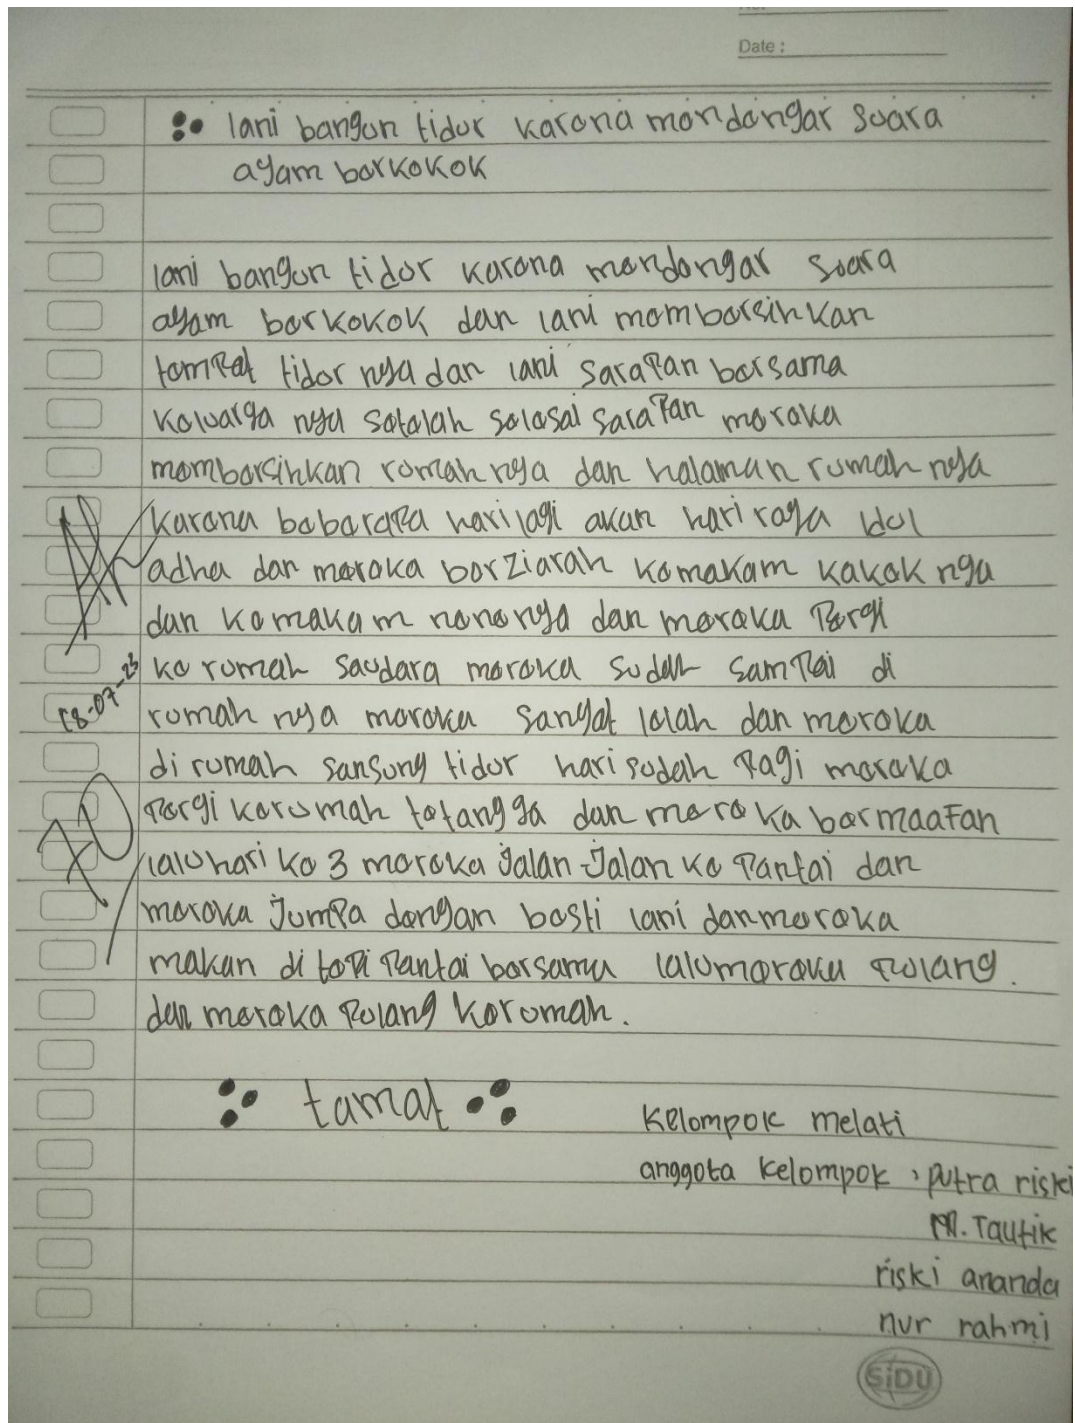 No:
Date :
lani bangun tidur karena mendengar suara
ayam berkokok
lani bangun tidur karena mendengar suara
ayam berkokok dan lani membersihkan
tempat tidur nya dan lani sarapan bersama
keluarga nya setelah selesai sarapan mereka
membersihkan rumah nya dan halaman rumah nya
karena beberapa hari lagi akan hari raya idul
adha dan mereka berziarah kemakam kakek nya
dan kemakam nenenya dan mereka Pergi
ke rumah saudara mereka sudah sampai di
rumah nya mereka sangat lelah dan mereka
di rumah sansung tidur hari sudah Pagi mereka
Pergi kerumah tetangga dan mereka bermaafan
lalu hari ke 3 mereka Jalan-Jalan ke Pantai dan
mereka Jumpa dengan besti lani dan mereka
makan di tepi Pantai bersama lalu mereka Pulang.
dan mereka Pulang kerumah.
18-07-23
70
tamat
Kelompok melati
anggota kelompok : putra riski
M. Taufik
riski ananda
nur rahmi
SiDU